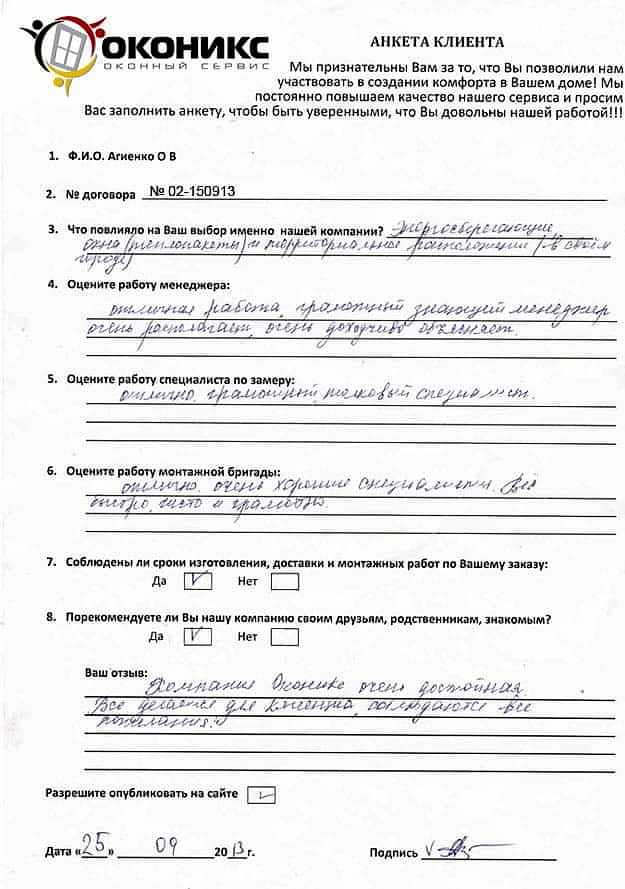 ОКОНИКС
ОКОННЫЙ СЕРВИС
АНКЕТА КЛИЕНТА
Мы признательны Вам за то, что Вы позволили нам
участвовать в создании комфорта в Вашем доме! Мы
постоянно повышаем качество нашего сервиса и просим
Вас заполнить анкету, чтобы быть уверенными, что Вы довольны нашей работой!!!
1. Ф.И.О. Агиенко О В
2. № договора № 02-150913
3. Что повлияло на Ваш выбор именно нашей компании? Энергосберегающие
окна (теплопакеты) и территориальное расположение (в своём
городе)
4. Оцените работу менеджера:
отличная работа, грамотный знающий менеджер
очень располагает, очень доходчиво объясняет.
5. Оцените работу специалиста по замеру:
отлично, грамотный, толковый специалист.
6. Оцените работу монтажной бригады:
отлично, очень хорошие специалисты. Всё
быстро, чисто и грамотно.
7. Соблюдены ли сроки изготовления, доставки и монтажных работ по Вашему заказу:
Да V Нет
8. Порекомендуете ли Вы нашу компанию своим друзьям, родственникам, знакомым?
Да V Нет
Ваш отзыв:
Компания Оконикс очень достойная.
Всё делается для клиента, соблюдаются все
пожелания.
Разрешите опубликовать на сайте
Дата «25» 09 2013г. Подпись V